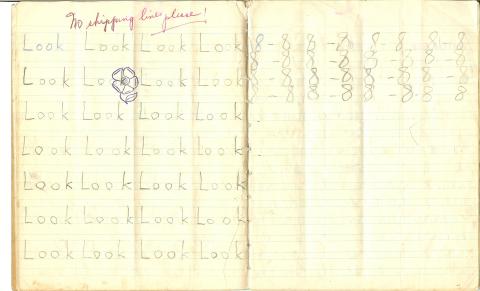 No skipping lines please!
Look Look Look Look
Look Look Look Look
Look Look Look Look
Look Look Look Look
Look Look Look Look
Look Look Look Look
Look Look Look Look
8 - 8 8 - 8 8 - 8 - 8 8
8 - 8 8 - 8 8 - 8 8 8
8 - 8 - 8 - 8 8 - 8 8 - 8
8 - 8 8 - 8 8 - 8 8 8